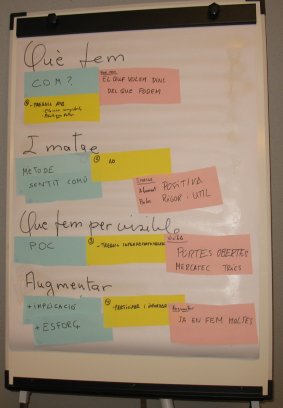 Què fem
COM?
EL QUE VOLEM DINS
DEL QUE PODEM
- TREBALL AMB
Imatge
MÈTODE
SENTIT COMÚ
NO
IMATGE
POSITIVA
RIGOR I ÚTIL
Que fem per visible
POC
- TREBALL INTERDEPARTAMENTAL
PORTES OBERTES
MERCATEC TRICS
Augmentar
+ IMPLICACIÓ
+ ESFORÇ
- PARTICIPAR I
Augmentar
JA EN FEM MOLTES